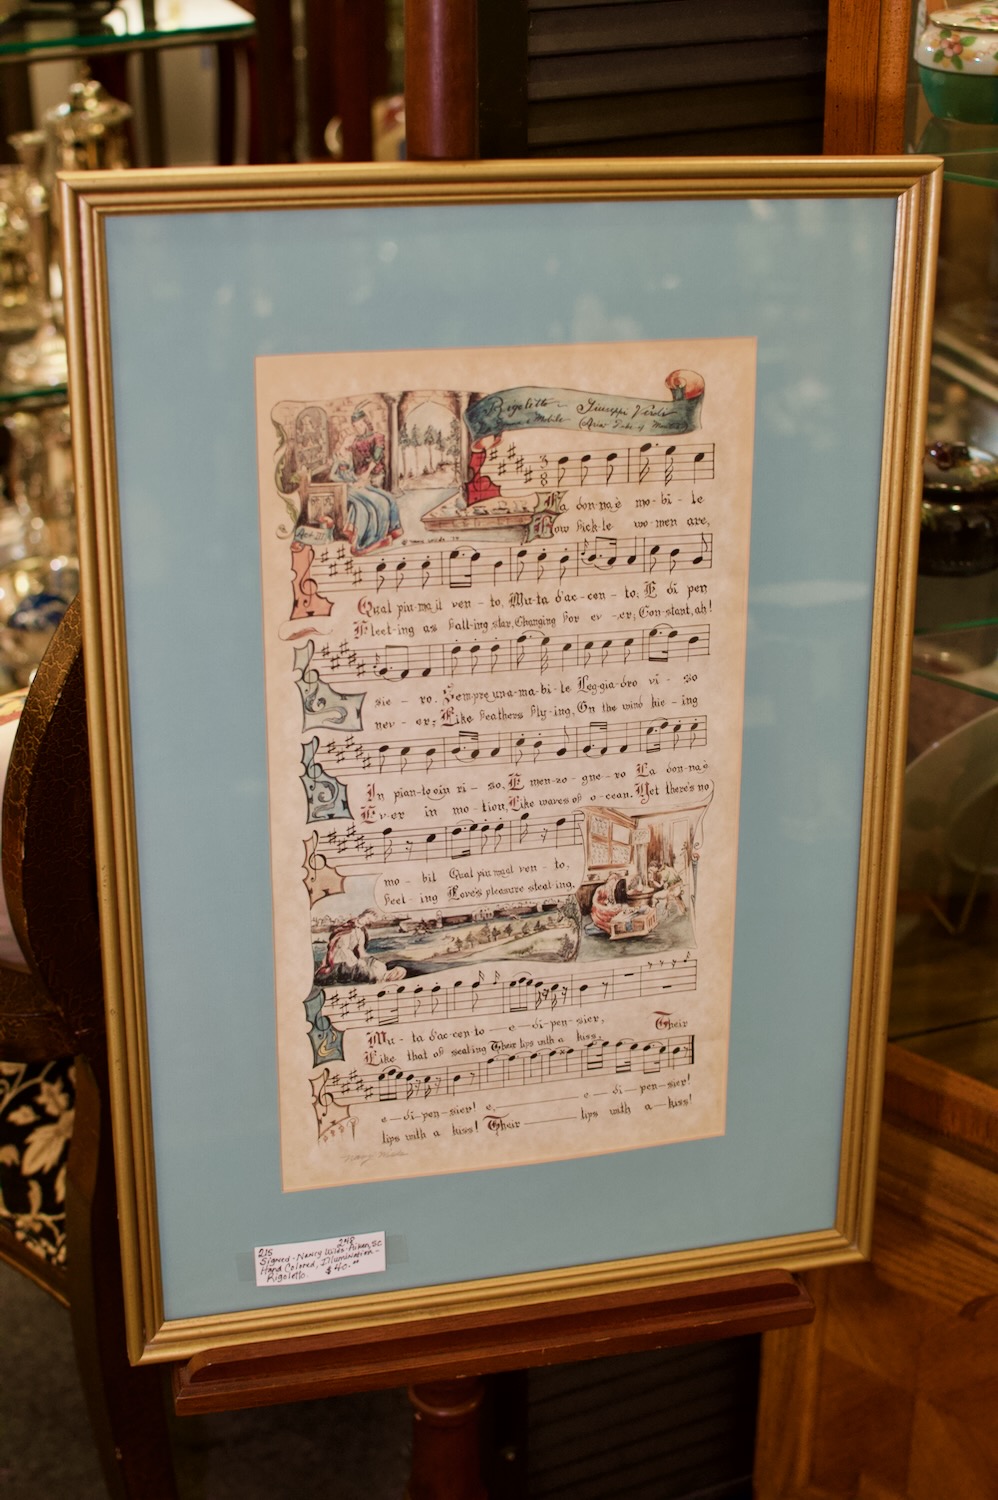 Rigoletto Giuseppi Verdi
Donna è Mobile (Aria Duke of
Act III
3
8
La don-na è mo-bi-le
How fick-le wo-men are,
Qual piu-ma il ven-to, Mu-ta d'ac-cen-to; E di pen
Fleet-ing as fall-ing star, Changing for ev-er; Con-stant, ah!
sie-ro. Sempre una-ma-bi-le Leg-gia-dro vi-so
nev-er; Like feathers fly-ing, On the wind hie-ing
In pian-to o in ri-so, E men-zo-gne-ro La don-na è
Ev-er in mo-tion, Like waves of o-cean. Yet there's no
mo-bil Qual piu ma al ven-to,
feet-ing Love's pleasure steal-ing,
Mu-ta d'ac-cen-to—e—di-pen-sier,
Like that of seal-ing Their lips with a kiss, Their
e-di-pen-sier! e, e-di-pen-sier!
lips with a kiss! Their lips with a kiss!
215 248
Signed - Nancy Wilds - Aiken, SC
Hand Colored, Illumination -
Rigoletto $40.00